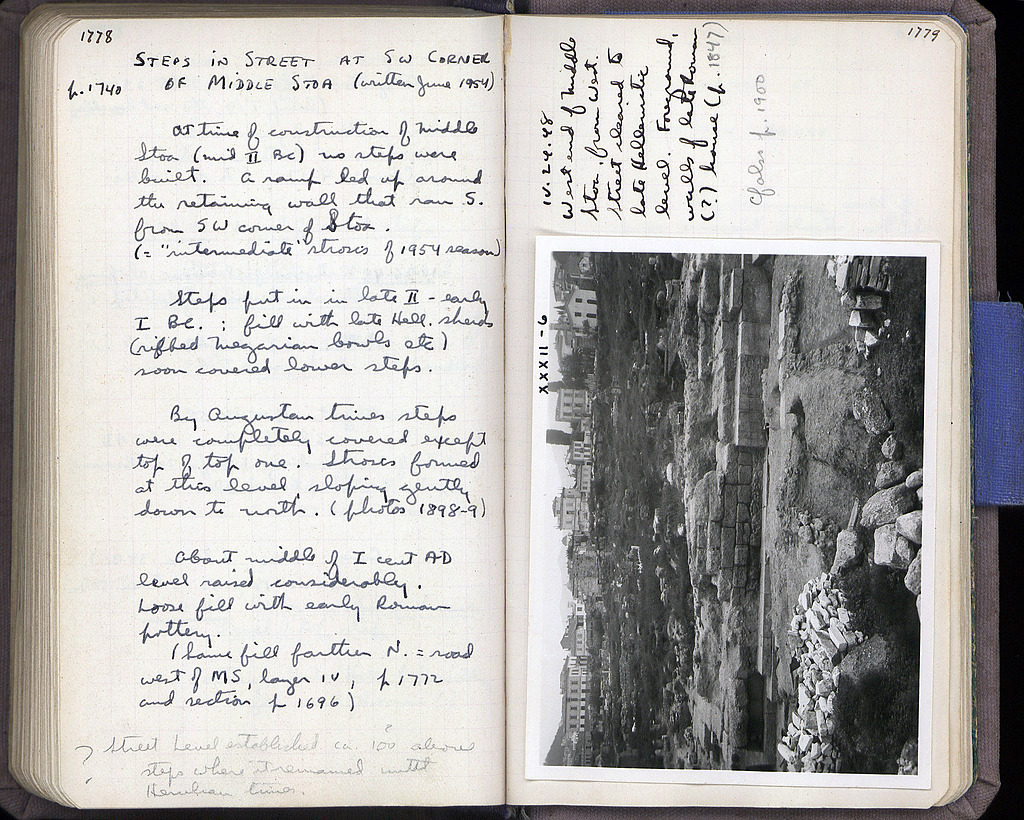 1778
STEPS IN STREET AT SW CORNER
p. 1740 OF MIDDLE STOA (written June 1954)
At time of construction of Middle
Stoa (mid II BC) no steps were
built. A ramp led up around
the retaining wall that ran S.
from SW corner of Stoa.
(= "intermediate" stroses of 1954 season)
Steps put in in late II - early
I BC. ; fill with late Hell. sherds
(ribbed Megarian bowls etc)
soon covered lower steps.
By Augustan times steps
were completely covered except
top of top one. Stroses formed
at this level, sloping gently
down to north. (photos 1898-9)
About middle of I cent AD
level raised considerably.
Loose fill with early Roman
pottery.
(Same fill farther N. = road
west of MS, layer IV, p 1772
and section p 1696)
? Street level established ca. 1.00 above
steps where it remained until
Herulian times.
1779
IV. 24. 48
West end of Middle
Stoa, from West.
Street cleared to
late Hellenistic
level. Foreground,
walls of late Roman
(?) house (p. 1847)
cf also p. 1900
XXXII-6